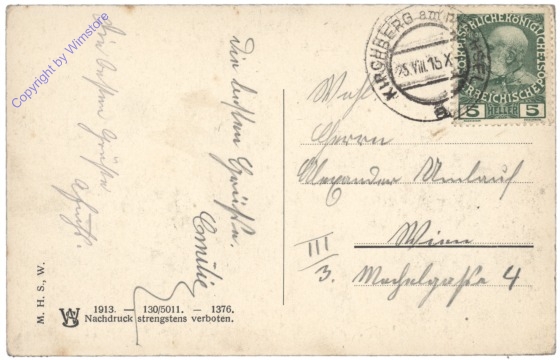 Copyright by Wimstore
die besten Grüße.
Die besten Grüße.
Emilie
M. H. S., W.
1913. — 130/5011. — 1376.
Nachdruck strengstens verboten.
KIRCHBERG am
25.VIII.15.X
KAISERLICHE KÖNIGLICHE
ÖSTERREICHISCHE
5 HELLER 5
Herrn
Alexander Umlauf
Wien
III
3. 4